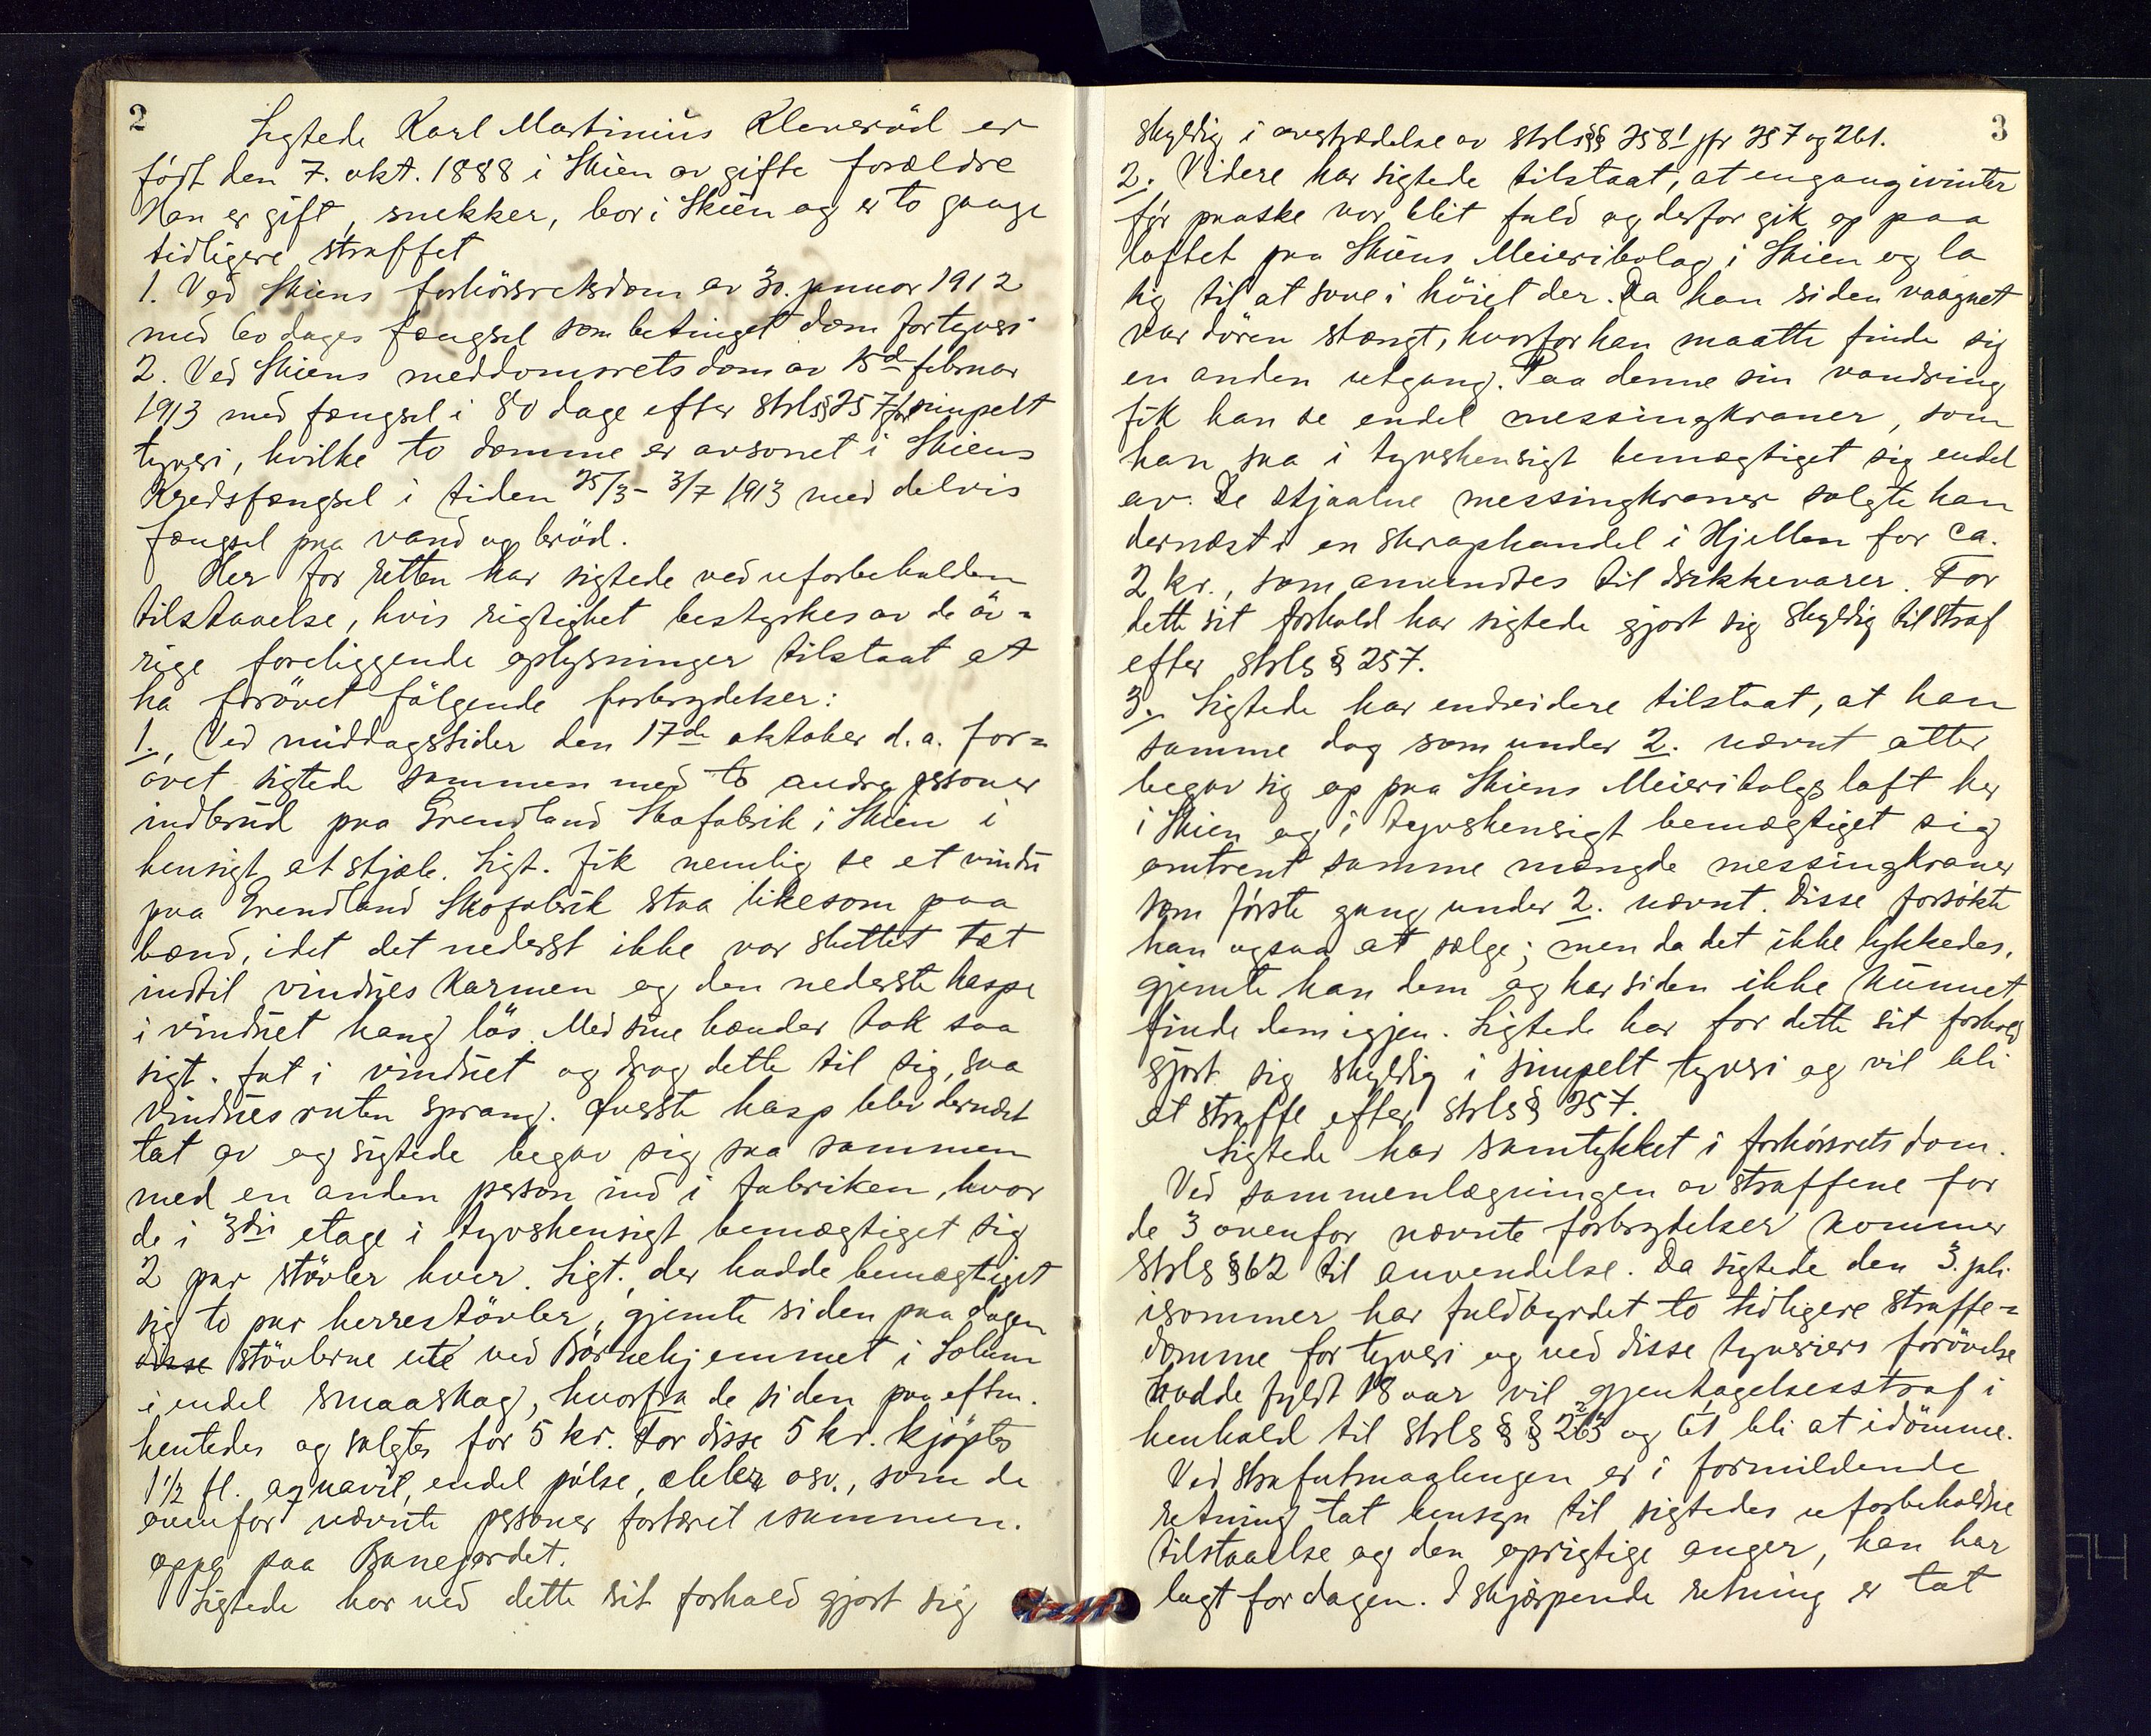 2
Sigtede Karl Martinius Kleverød er
født den 7. okt. 1888 i Skien av gifte forældre
Han er gift, snekker, bor i Skien og er to gange
tidligere straffet
1. Ved Skiens forhørsretsdom av 30. januar 1912
med 60 dages fængsel som betinget dom for tyveri
2. Ved Skiens meddomsretsdom av 15de februar
1913 med fængsel i 80 dage efter strls § 257 for simpelt
tyveri, hvilke to domme er avsonet i Skiens
Kredsfængsel i tiden 25/3 - 3/7 1913 med delvis
fængsel paa vand og brød.
Her for retten har sigtede ved uforbeholden
tilstaaelse, hvis rigtighet bestyrkes av de øv=
rige foreliggende oplysninger tilstaat at
ha forøvet følgende forbrydelser:
1., Ved middagstider den 17de oktober d.a. for=
øvet sigtede sammen med to andre personer
indbrud paa Grendland Skofabrik i Skien i
hensigt at stjæle. Sigt. fik nemlig se et vindu
paa Grendland Skofabrik staa likesom paa
bænd, idet det nederst ikke var sluttet tæt
indtil vindues karmen og den nederste haspe
i vinduet hang løs. Med sine hænder tok saa
sigt. fat i vinduet og drog dette til sig, saa
vinduesruten sprang. Øverste hasp blev dernæst
tat av og sigtede begav sig saa sammen
med en anden person ind i fabriken, hvor
de i 3die etage i tyvshensigt bemægtiget sig
2 par støvler hver. Sigt., der hadde bemægtiget
sig to par herrestøvler, gjemte siden paa dagen
disse støvlerne ute ved Børnehjemmet i Solum
i endel smaaskog, hvorfra de siden paa eftm.
hentedes og solgtes for 5 kr. For disse 5 kr. kjøptes
1 1/2 fl. aqvavit, endel pølse, æbler osv., som de
ovenfor nævnte personer fortæret isammen.
oppe paa Banejordet.
Sigtede har ved dette sit forhold gjort sig
3
skyldig i overtrædelse av strls §§ 258 1 jfr 257 og 261.
2. Videre har sigtede tilstaat, at engang ivinter
før paaske var blit fuld og derfor gik op paa
loftet paa Skiens Meieribolag i Skien og la
sig til at sove i høiet der. Da han siden vaagnet
var døren stængt, hvorfor han maatte finde sig
en anden utgang. Paa denne sin vandring
fik han se endel messingkraner, som
han saa i tyvshensigt bemægtiget sig endel
av. De stjaalne messingkraner solgte han
dernæst i en skraphandel i Hjellen for ca.
2 kr., som anvendtes til drikkevarer. For
dette sit forhold har sigtede gjort sig skyldig til straf
efter strls § 257.
3. Sigtede har endvidere tilstaat, at han
samme dag som under 2. nævnt atter
begav sig op paa Skiens Meieribolags loft her
i Skien og i tyvshensigt bemægtiget sig
omtrent samme mængde messingkraner
som første gang under 2. nævnt. Disse forsøkte
han ogsaa at sælge; men da det ikke lykkedes,
gjemte han dem og har siden ikke kunnet
finde dem igjen. Sigtede har for dette sit forhold
gjort sig skyldig i simpelt tyveri og vil bli
at straffe efter strls § 257.
Sigtede har samtykket i forhørsretsdom.
Ved sammenlægningen av straffene for
de 3 ovenfor nævnte forbrydelser kommer
strls § 62 til anvendelse. Da sigtede den 3. juli
isommer har fuldbyrdet to tidligere straffe=
domme for tyveri og ved disse tyveriers forøvelse
hadde fyldt 18 aar vil gjentagelsesstraf i
henhold til strls § § 263 og 61 bli at idømme.
Ved strafutmaalingen er i formildende
retning tat hensyn til sigtedes uforbeholdne
tilstaaelse og den oprigtige anger, han har
lagt for dagen. I skjærpende retning er tat